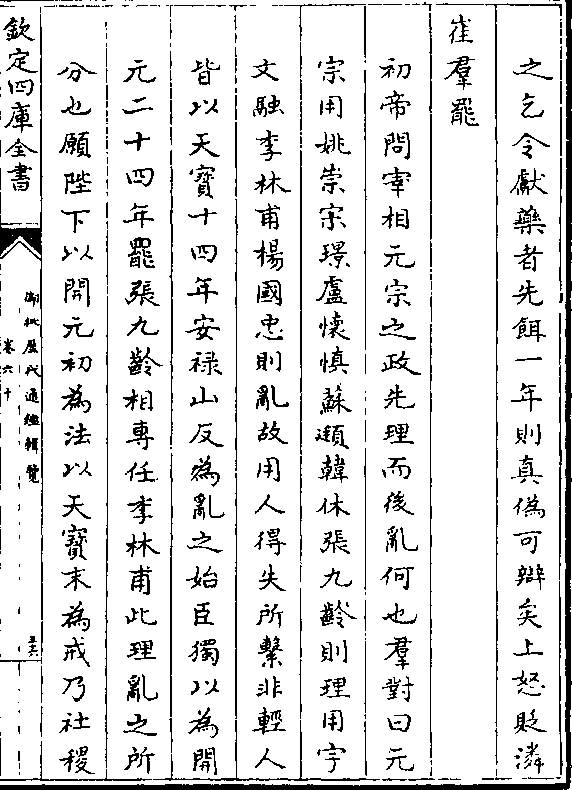 之乞令獻藥者先餌一年則真偽可辯矣上怒貶潾
崔羣罷
初帝問宰相元宗之政先理而後亂何也羣對曰元
宗用姚崇宋璟盧懷慎蘇頲韓休張九齡則理用宇
文融李林甫楊國忠則亂故用人得失所繫非輕人
皆以天寶十四年安禄山反為亂之始臣獨以為開
元二十四年罷張九齡相專任李林甫此理亂之所
分也願陛下以開元初為法以天寶末為戒乃社稷
欽定四庫全書
御批歷代通鑑輯覽
卷六十